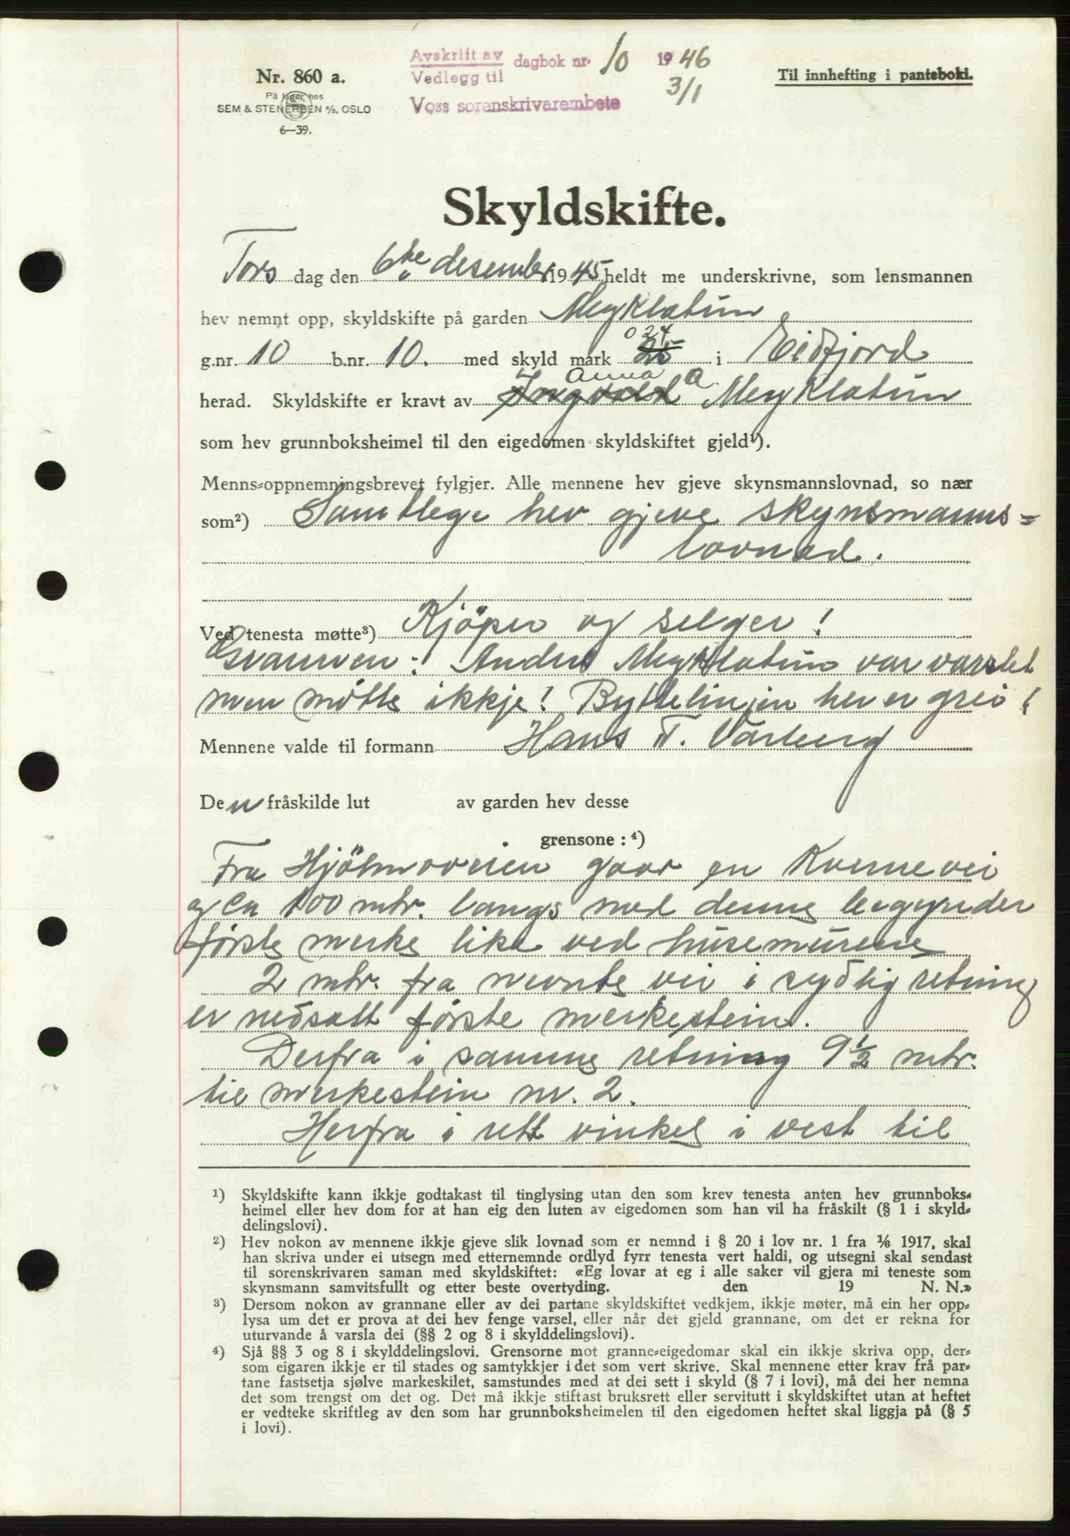 Avskrift av
Vedlegg til dagbok nr. 10 1946
3/1
Voss sorenskrivarembete
Nr. 860 a.
På lager hos
SEM & STENERSEN A/S, OSLO
6—39.
Til innhefting i pantebok.
Skyldskifte.
Tors dag den 6te desember 1945 heldt me underskrivne, som lensmannen
hev nemnt opp, skyldskifte på garden Myklatun
g.nr. 10 b.nr. 10. med skyld mark 0 24 i Eidfjord
herad. Skyldskifte er kravt av Anna A Myklatun
som hev grunnboksheimel til den eigedomen skyldskiftet gjeld¹).
Menns-oppnemningsbrevet fylgjer. Alle mennene hev gjeve skynsmannslovnad, so nær
som²) Samtlege hev gjeve skynsmanns=
lovnad.
Ved tenesta møtte³) Kjöper og selger!
Grannen: Anders Myklatun var varslet
men møtte ikkje! Byttelinjen her er grei!
Mennene valde til formann Hans T. Varberg
Den fråskilde lut av garden hev desse
grensone: ⁴)
Fra Hjölmoveien gaar en Kvernevei
og ca 100 mtr. langs med denne begynder
første merke like ved husemurene
2 mtr. fra nevnte vei i sydlig retning
er nedsatt første merkestein.
Derfra i samme retning 9½ mtr.
til merkestein nr. 2.
Herfra i rett vinkel i vest til
¹) Skyldskifte kann ikkje godtakast til tinglysing utan den som krev tenesta anten hev grunnboks-
heimel eller hev dom for at han eig den luten av eigedomen som han vil ha fråskilt (§ 1 i skyld-
delingslovi).
²) Hev nokon av mennene ikkje gjeve slik lovnad som er nemnd i § 20 i lov nr. 1 fra 1/6 1917, skal
han skriva under ei utsegn med etternemnde ordlyd fyrr tenesta vert haldi, og utsegni skal sendast
til sorenskrivaren saman med skyldskiftet: «Eg lovar at eg i alle saker vil gjera mi teneste som
skynsmann samvitsfullt og etter beste overtyding. den 19 N. N.»
³) Dersom nokon av grannane eller av dei partane skyldskiftet vedkjem, ikkje møter, må ein her opp-
lysa um det er prova at dei hev fenge varsel, eller når det gjeld grannane, om det er rekna for
uturvande å varsla dei (§§ 2 og 8 i skylddelingslovi).
⁴) Sjå §§ 3 og 8 i skylddelingslovi. Grensorne mot granne-eigedomar skal ein ikkje skriva opp, der-
som eigaren ikkje er til stades og samtykkjer i det som vert skrive. Skal mennene etter krav frå par-
tane fastsetja sjølve markeskilet, samstundes med at dei sett i skyld (§ 7 i lovi), må dei her nemna
det som trengst om det og. Det må ikkje stiftast bruksrett eller servitutt i skyldskiftet utan at heftet
er vedteke skriftleg av den som har grunnboksheimelen til den eigedomen heftet skal liggja på (§ 5
i lovi).